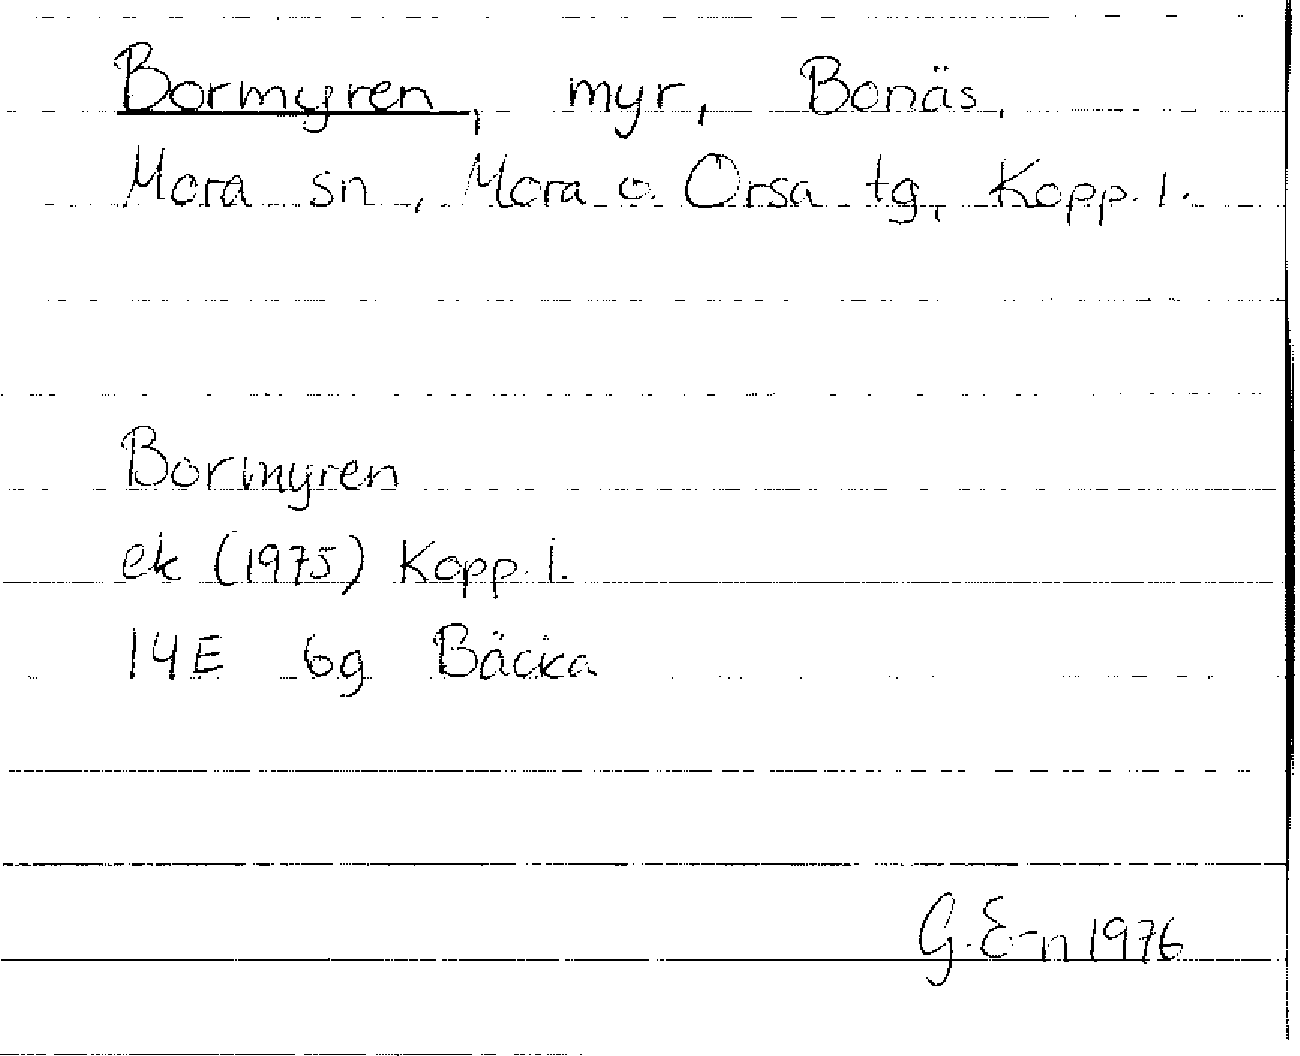 Bormyren, myr, Bonäs,
Mora sn, Mora o. Orsa tg, Kopp. l.
Bormyren
ek (1975) Kopp. l.
14E 6g Bäcka
G. E-n 1976